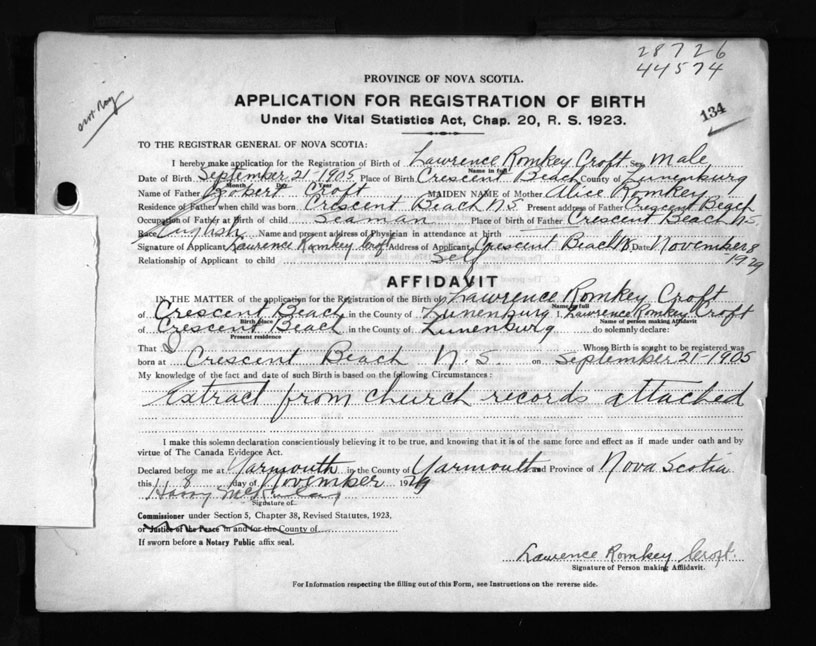 28726
44574
PROVINCE OF NOVA SCOTIA.
134
APPLICATION FOR REGISTRATION OF BIRTH
Under the Vital Statistics Act, Chap. 20, R. S. 1923.
TO THE REGISTRAR GENERAL OF NOVA SCOTIA:
I hereby make application for the Registration of Birth of Lawrence Romkey Croft Sex Male,
Name in full
Date of Birth September 21-1905 Place of Birth Crescent Beach County of Lunenburg
Month Day Year
Name of Father Robert Croft MAIDEN NAME of Mother Alice Romkey
Residence of Father when child was born Crescent Beach N S Present address of Father Crescent Beach
Occupation of Father at Birth of child Seaman Place of birth of Father Crescent Beach N.S.
Race English Name and present address of Physician in attendance at birth
Signature of Applicant Lawrence Romkey Croft Address of Applicant Crescent Beach Date November 8
1929
Relationship of Applicant to child Self
AFFIDAVIT
IN THE MATTER of the application for the Registration of the Birth of Lawrence Romkey Croft
Name in full
of Crescent Beach in the County of Lunenburg I, Lawrence Romkey Croft
Birth place Name of person making Affidavit
of Crescent Beach in the County of Lunenburg do solemnly declare:
Present residence
That I Whose Birth is sought to be registered was
born at Crescent Beach N.S. on September 21-1905
My knowledge of the fact and date of such Birth is based on the following Circumstances:
Extract from church records attached
I make this solemn declaration conscientiously believing it to be true, and knowing that it is of the same force and effect as if made under oath and by
virtue of The Canada Evidence Act.
Declared before me at Yarmouth in the County of Yarmouth and Province of Nova Scotia
this 8 day of November 1929
Harry
Signature of
Commissioner under Section 5, Chapter 38, Revised Statutes, 1923.
or Justice of the Peace in and for the County of
If sworn before a Notary Public affix seal.
Lawrence Romkey Croft.
Signature of Person making Affidavit.
For Information respecting the filling out of this Form, see Instructions on the reverse side.